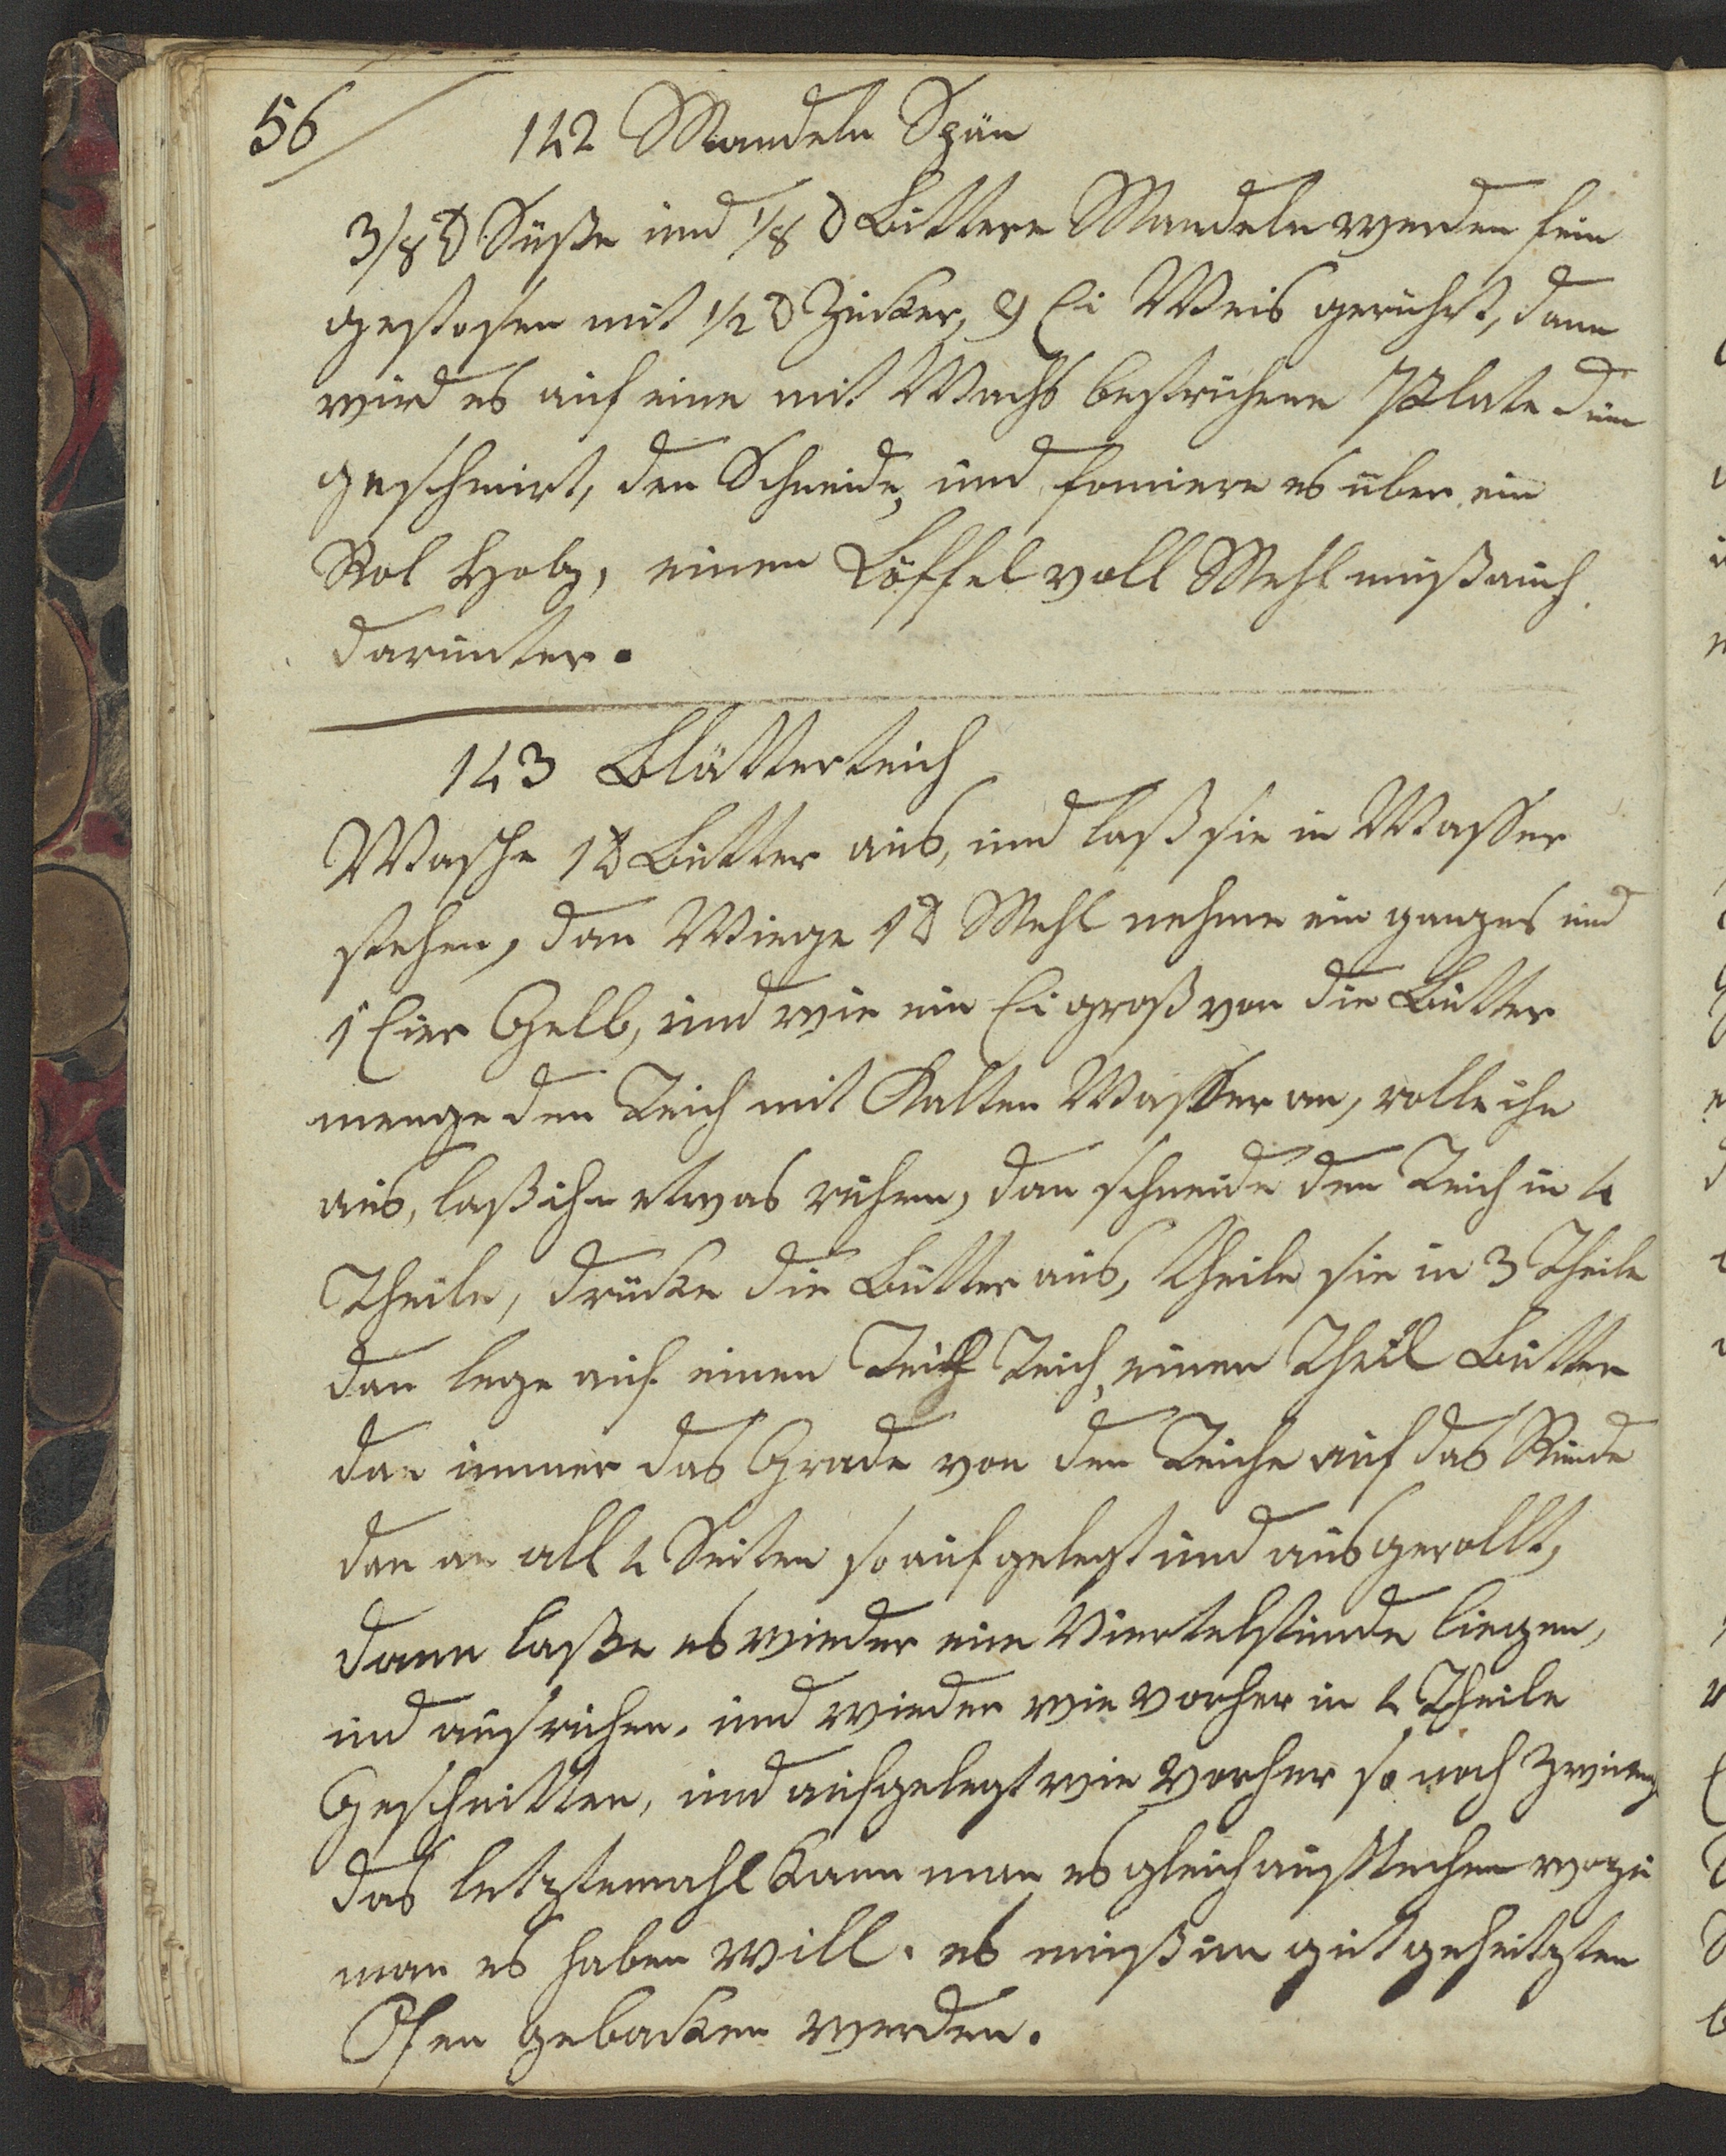 56
142 Mandeln Spän
3/8 ℔ Süße und 1/8 ℔ Bittere Mandeln werden fein
gestosen mit 1/2 ℔ Zucker, 9 Ei Weis gerührt, dann
wird es auf eine mit Wachs bestrichene Plate dün
geschmirt, den Schneide, und formiere es über ein
Rol Holz, einen Löffel voll Mehl muß auch
darunter.
143 Blätterteich
Wasche 1 ℔ Butter aus, und laß sie in Wasser
stehen, dan Wiege 1 ℔ Mehl nehme ein ganzes und
1 Eier Gelb, und wie ein Ei groß von die Butter
menge den Teich mit Kalten Wasser an, rolle ihn
aus, laß ihn etwas ruhen, dan schneide den Teich in 4
Theile, drücke die Butter aus, theile sie in 3 Theile
dan lege auf einen Teich, einen Theil Butter
dan immer das Grade von den Teiche auf das Runde
dan an all 4 Seiten so aufgelegt und ausgerollt,
dann laße es wieder eine Viertelstunde liegen,
und ausruhen. und wieder wie vorher in 4 Theile
Geschnitten, und aufgelegt wie vorher so noch
das letztemahl kann man es gleich ausstechen wozu
man es haben will. es muß im gut geheitzten
Ofen gebacken werden.